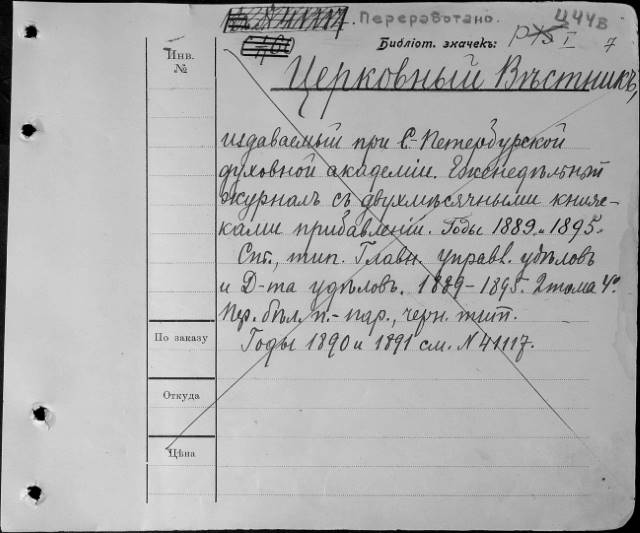 Переработано. Ц44в
Библіот. значекъ: I 7
Инв. №
Церковный Вѣстникъ,
издаваемый при С.-Петербургской
духовной академіи. Еженедѣльный
журналъ съ двухмѣсячными книж-
ками прибавленіи. Годы 1889 и 1895.
Спб., тип. Главн. управл. удѣловъ
и Д-та удѣловъ. 1889-1895. 2 тома 4º.
Пер. бѣл. п.-пар., черн. тит.
По заказу
Годы 1890 и 1891 см. N 41117.
Откуда
Цѣна